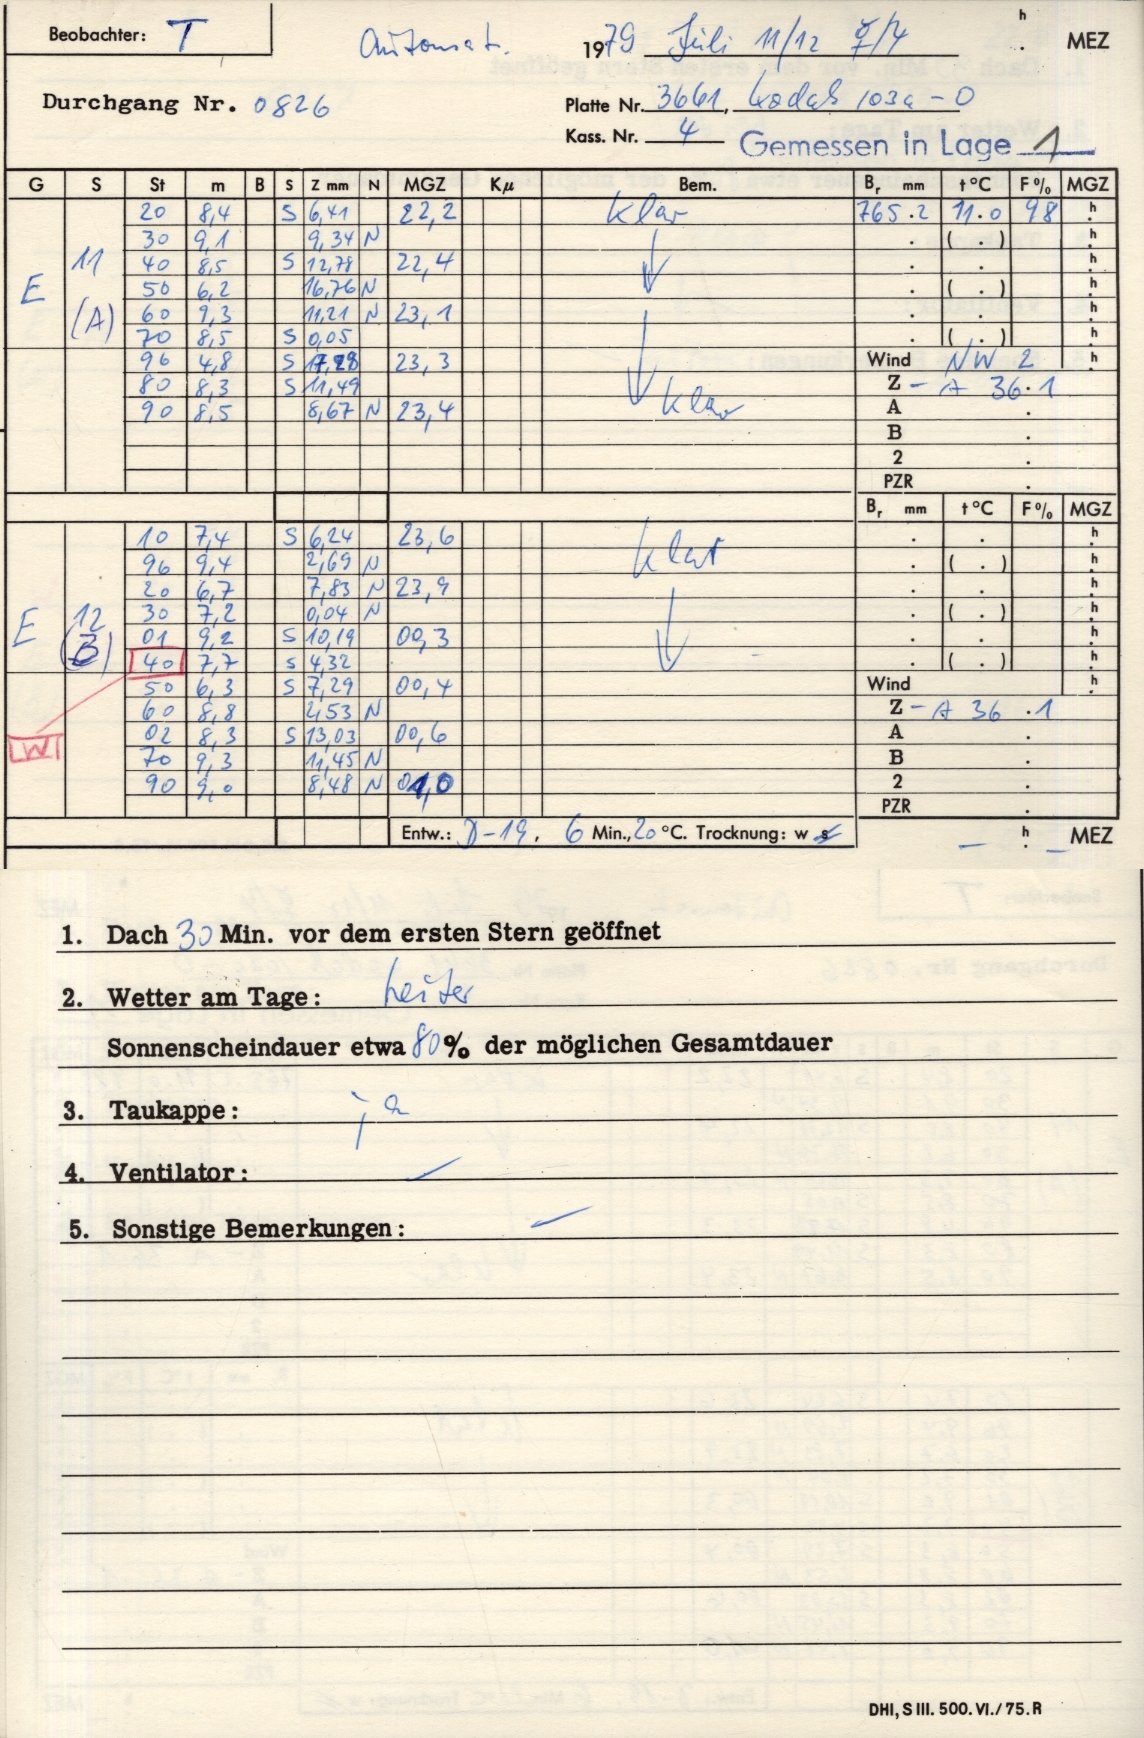 Beobachter: T Automat. 1979 Juli 11/12 h . MEZ
Durchgang Nr. 0826 Platte Nr. 3661, Kodak 103a-O
Kass. Nr. 4 Gemessen in Lage 1
G S St m B S Z mm N MGZ Kμ Bem. Br mm t°C F% MGZ
20 8,4 S 6,41 22,2 klar 765.2 11.0 98 h
30 9,1 9,34 N . ( . )
E 11 40 8,5 S 12,78 22,4 . . h
50 6,2 16,76 N . ( . )
(A) 60 9,3 11,21 N 23,1 . . h
70 8,5 S 0,05 . ( . ) h
96 4,8 S 17,28 23,3 Wind NW 2 h
80 8,3 S 11,49 Z - A 36.1
90 8,5 8,67 N 23,4 klar A .
B .
2 .
PZR .
Br mm t°C F% MGZ
10 7,4 S 6,24 23,6 klar . . h
96 9,4 2,69 N . ( . ) h
20 6,7 7,83 N 23,9 . . h
E 12 30 7,2 0,04 N . ( . ) h
(B) 01 9,2 S 10,19 00,3 . . h
40 7,7 S 4,32 . ( . ) h
50 6,3 S 7,29 00,4 Wind h
60 8,8 2,53 N Z - A 36.1
W 02 8,3 S 13,03 00,6 A .
70 9,3 11,45 N B .
90 9,0 8,48 N 01,0 2 .
PZR .
Entw.: D-19, 6 Min., 20 °C. Trocknung: w s — h — MEZ
1. Dach 30 Min. vor dem ersten Stern geöffnet
2. Wetter am Tage: heiter
Sonnenscheindauer etwa 80% der möglichen Gesamtdauer
3. Taukappe: ja
4. Ventilator: —
5. Sonstige Bemerkungen: —
DHI, S III. 500. VI./75. R